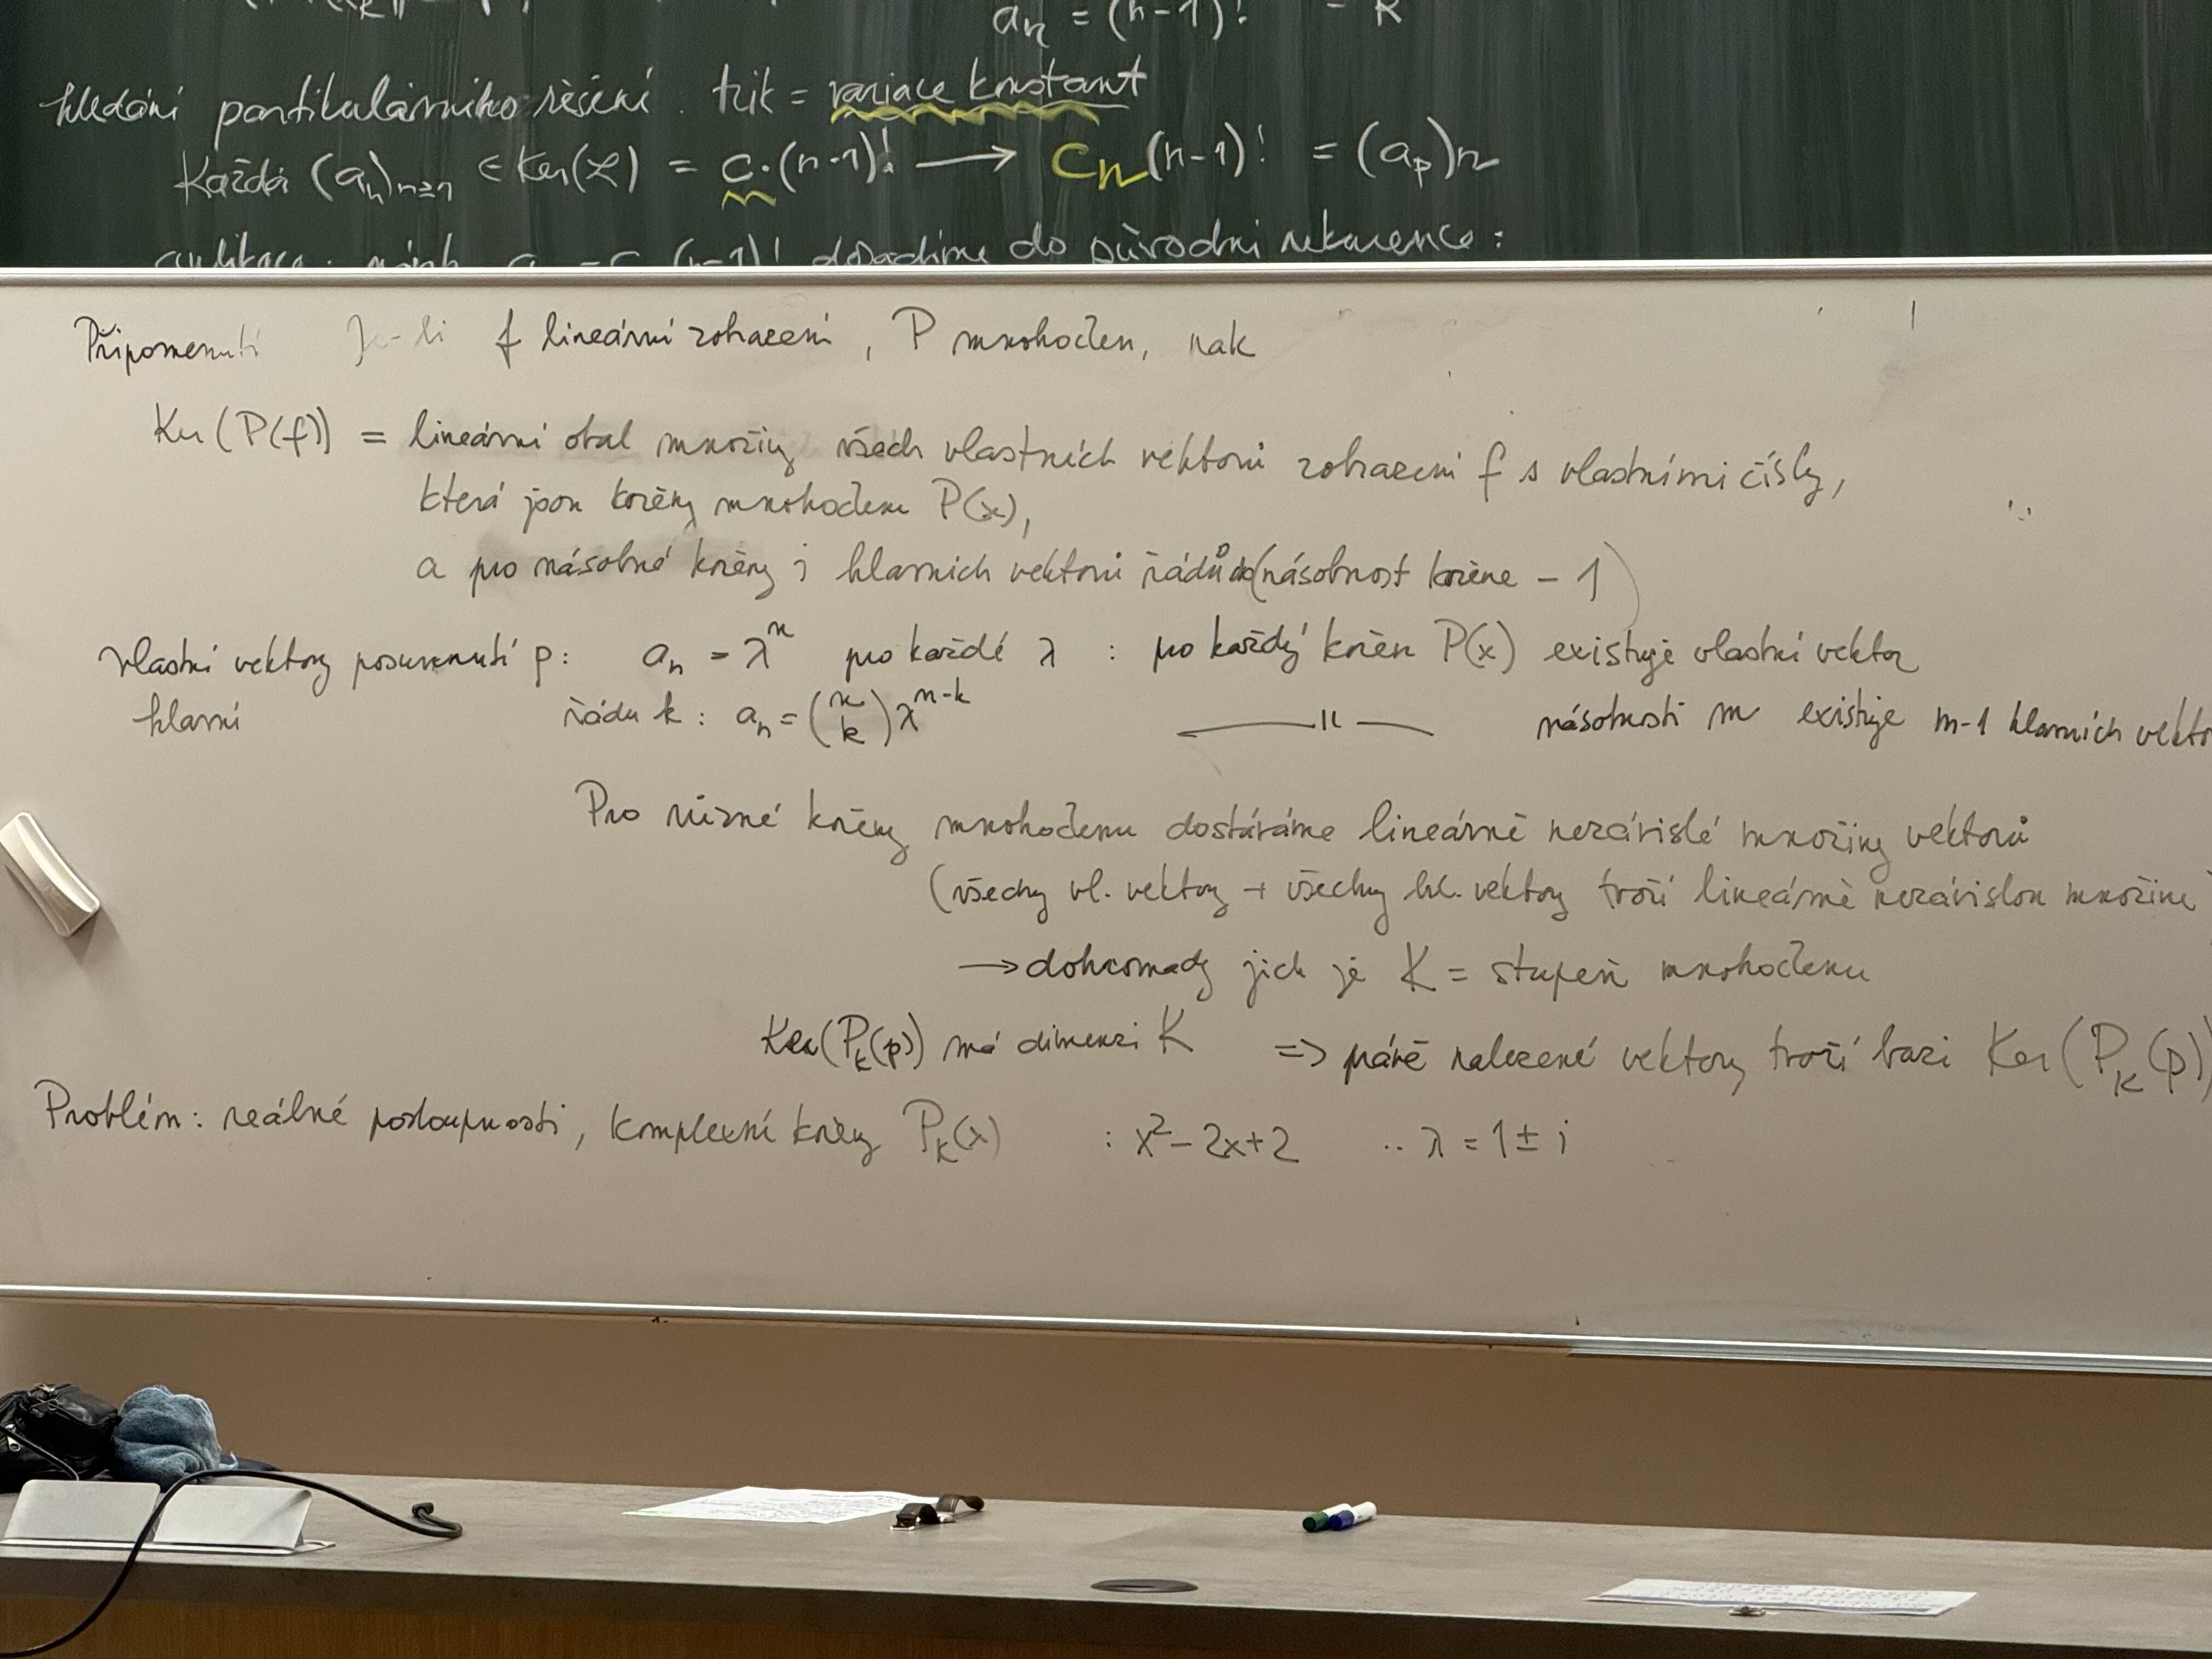 aₙ = (n-1)!
Hledání partikulárního řešení. trik = variace konstant
Každá (aₙ)ₙ≥₁ ∈ Ker(ℒ) = c·(n-1)! → cₙ(n-1)! = (aₚ)ₙ
(n-1)! dosadíme do původní rekurence:
Připomenutí Je-li f lineární zobrazení, P mnohočlen, pak
Ker(P(f)) = lineární obal množiny všech vlastních vektorů zobrazení f s vlastními čísly,
která jsou kořeny mnohočlenu P(x),
a pro násobné kořeny i hlavních vektorů řádů do (násobnost kořene - 1)
vlastní vektory posunutí p: aₙ = λⁿ pro každé λ : pro každý kořen P(x) existuje vlastní vektor
hlavní řádu k: aₙ = (n k) λⁿ⁻ᵏ —— 〃 —— násobnosti m existuje m-1 hlavních vekto
Pro různé kořeny mnohočlenu dostáváme lineárně nezávislé množiny vektorů
(všechny vl. vektory + všechny hl. vektory tvoří lineárně nezávislou množinu)
→ dohromady jich je K = stupeň mnohočlenu
Ker(Pₖ(p)) má dimenzi K => právě nalezené vektory tvoří bazi Ker(Pₖ(p))
Problém: reálné posloupnosti, komplexní kořeny Pₖ(x) : x² - 2x + 2 .. λ = 1 ± i